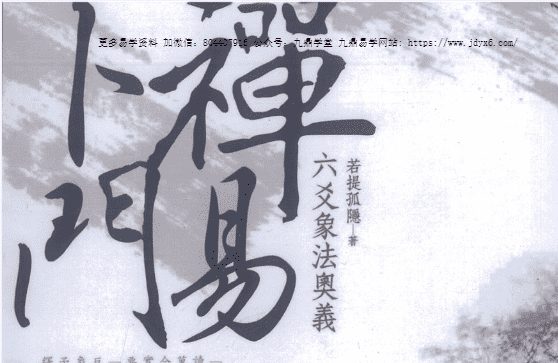 更多易学资料 加微信: 公众号: 九鼎学堂 九鼎易学网站: https://www.jdyx6.com/
禪易
卜門
六爻象法奧義
若提孤隱—著